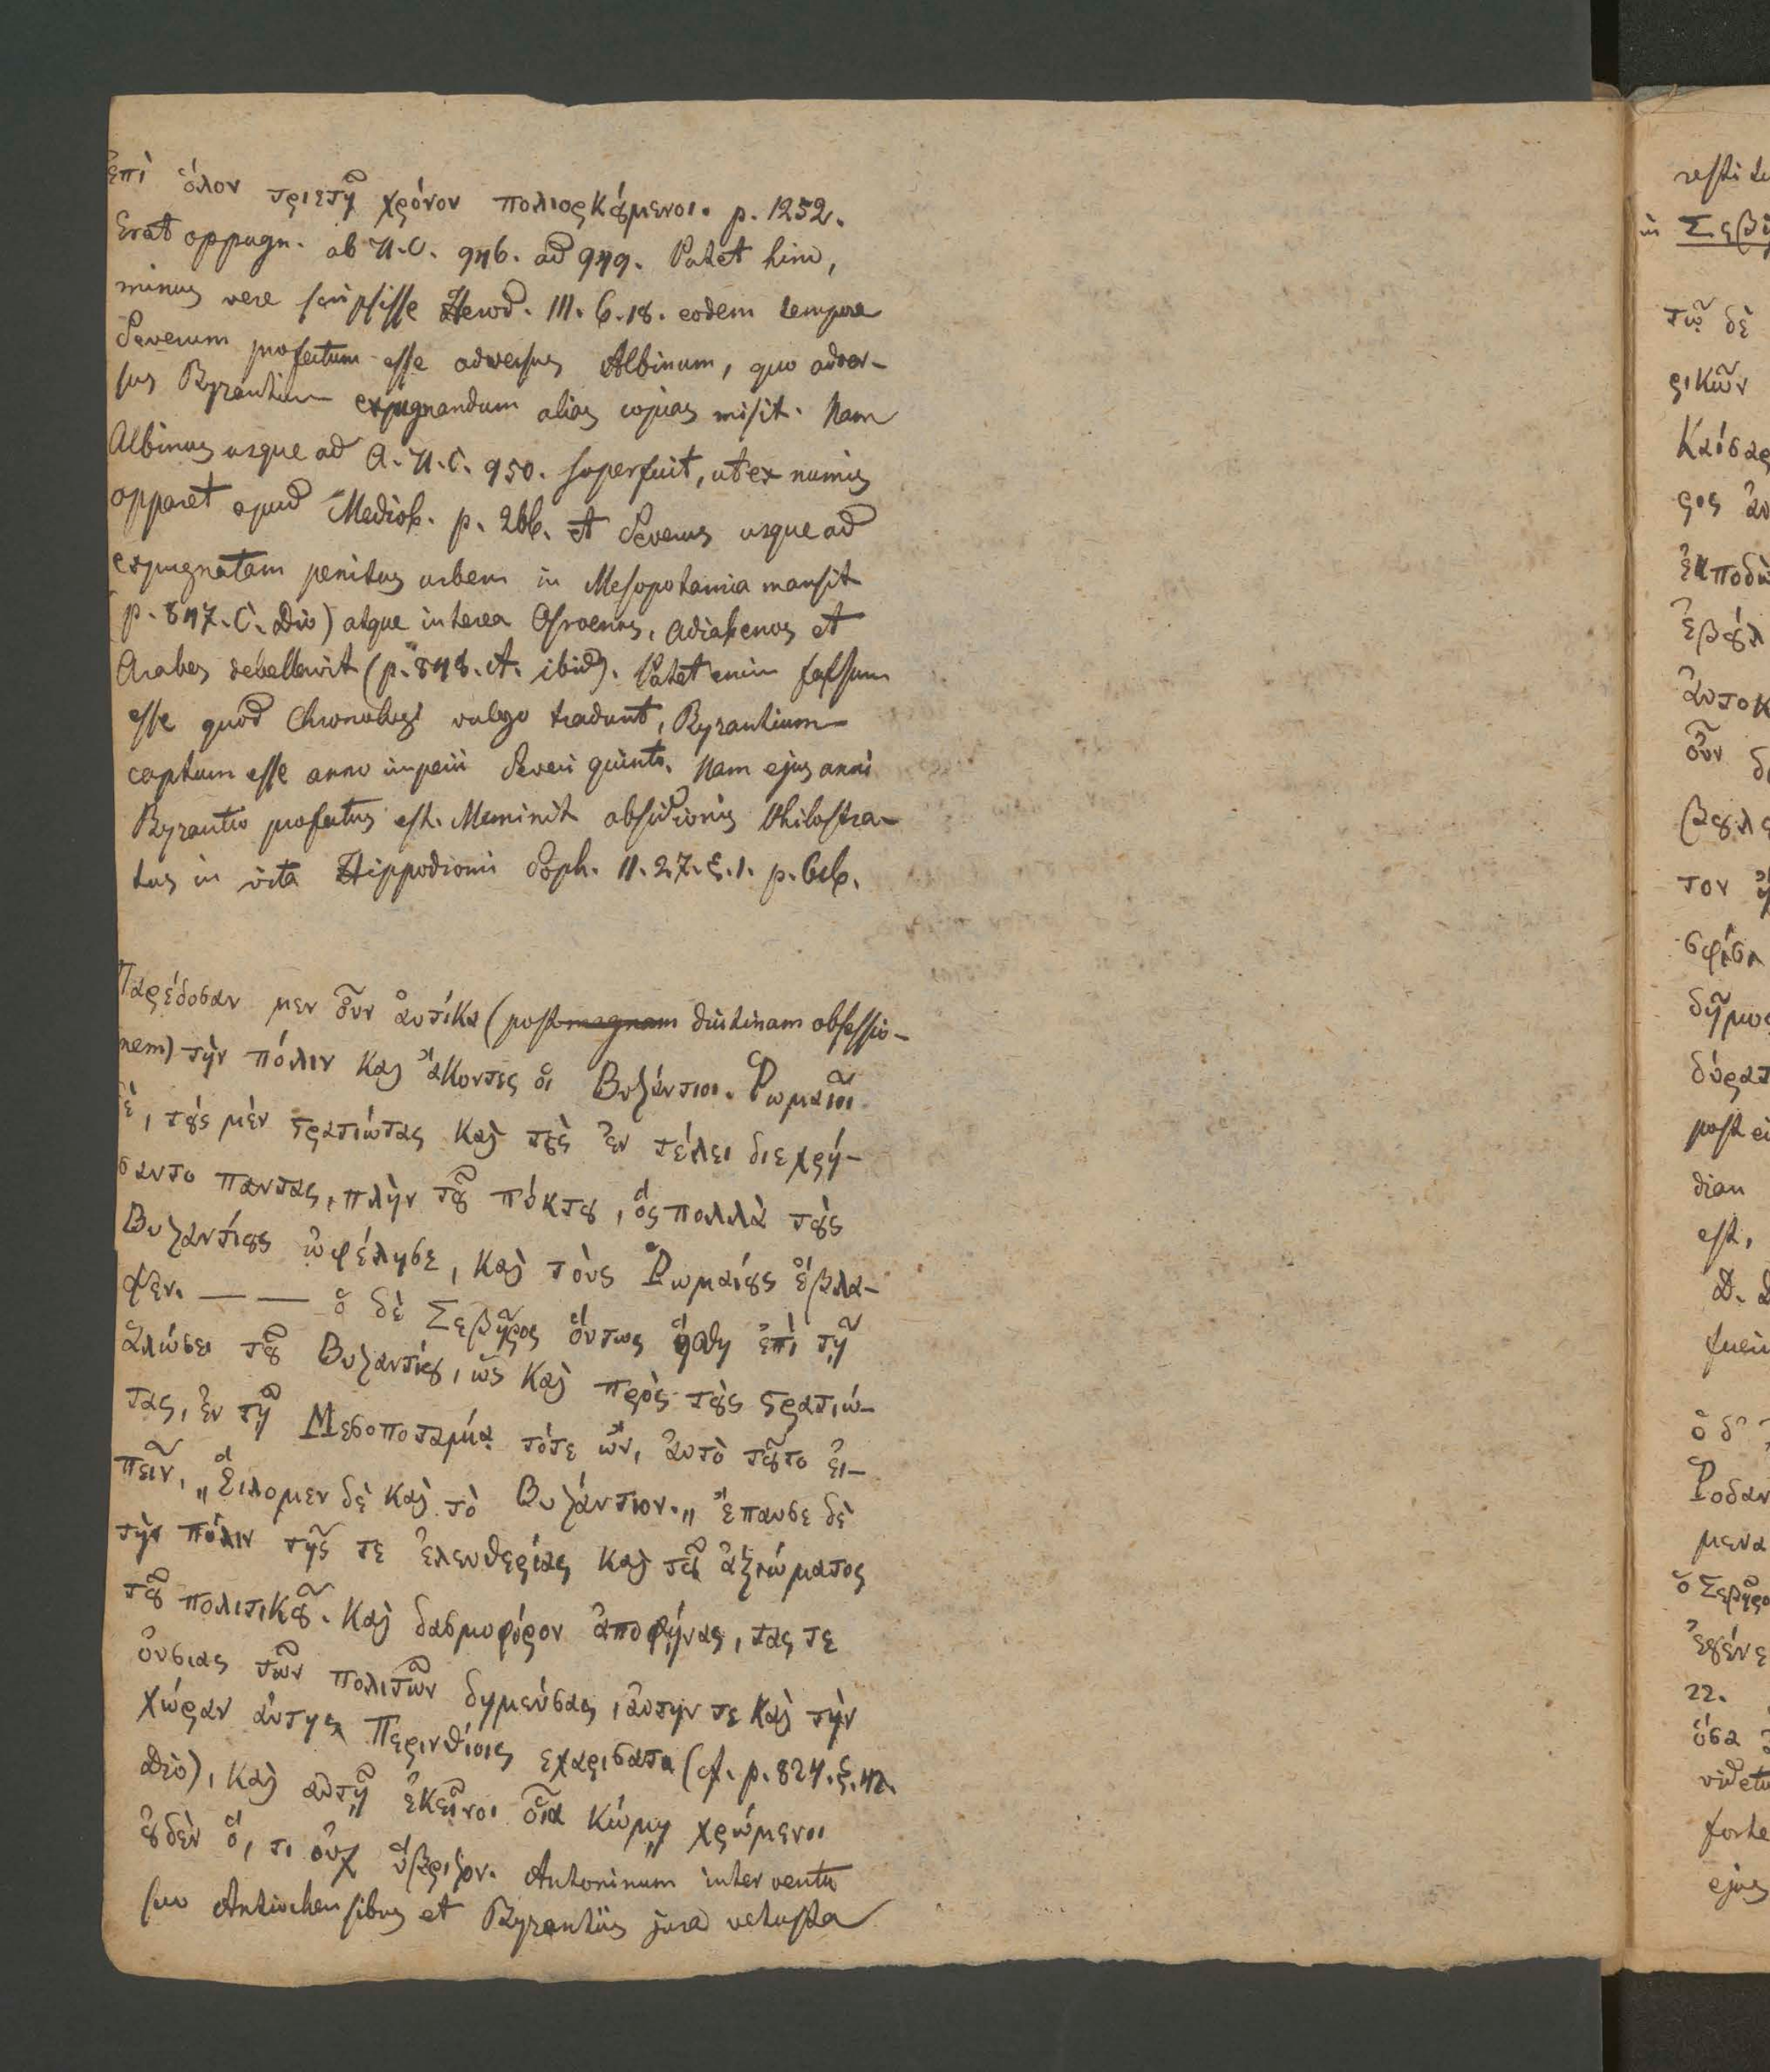 ἐπὶ ὅλον τριετῆ χρόνον πολιορκȣ́μενοι. p. 1252.
Erat oppugn. ab U.C. 946. ad 949. Patet hinc,
minus vere scripsisse Herod. III. 6. 18. eodem tempore
Severum profectum esse adversus Albinum, quo adver-
sus Byzantium expugnandum alias copias misit. Nam
Albinus usque ad A. U. C. 950. superfuit, ut ex numis
apparet apud Mediob. p. 266. et Severus usque ad
expugnatam penitus urbem in Mesopotamia mansit
(p. 847. C. Dio) atque interea Osroenos, Adiabenos et
Arabes debellavit (p. 848. A. ibid). Patet enim falsum
esse quod Chronologi vulgo tradunt, Byzantium
captum esse anno imperii Severi quinto. Nam ejus anni
Byzantio profectus est. Meminit obsidionis Philostra-
tus in vita Hippodromi Soph. II. 27. §. 1. p. 616.
Παρέδοσαν μεν ȣ̓͂ν ἀυτίκα (post magnam diutinam obsessio-
nem) τὴν πόλιν καὶ ἄκοντες ὁι Βυζάντιοι. Ρωμαῖοι
δὲ, τȣ́ς μὲν ϛρατιώτας καὶ τȣ̀ς ἐν τέλει διεχρή-
σαντο παντας, πλὴν τȣ͂ πύκτȣ, ὅς πολλὰ τȣ̀ς
Βυζαντίȣς ὠφέλησε, καὶ τοὺς Ῥωμαίȣς ἔβλα-
ψεν. — — ὁ δὲ Σεβῆρος ὅυτως ἥσθη ἐπὶ τῇ
ἁλώσει τȣ͂ Βυζαντίȣ, ὥς καὶ πρὸς τȣ̀ς ϛρατιώ-
τας, ἐν τῇ Μεσοποταμίᾳ τότε ὤν, ἀυτὸ τȣ͂το ἐι-
πεῖν, „Ἑίλομεν δὲ καὶ τὸ Βυζάντιον.„ ἔπαυσε δὲ
τὴν πόλιν τῆς τε ἐλευθερίας καὶ τȣ͂ ἀξιώματος
τȣ͂ πολιτικȣ͂. καὶ δασμοφόρον ἀποφήνας, τας τε
ὀυσιας τῶν πολιτῶν δημεύσας, ἀυτην τε καὶ τὴν
χώραν ἀυτης Περινθίοις εχαρισατο (cf. p. 824. §. 42.
Dio), καὶ αὐτῇ ἐκεῖνοι ὁῖα κώμῃ χρώμενοι
ȣ̓δὲν ὅ, τι ὀυχ ὕβριζον. Antoninum interventu
suo Antiochensibus et Byzantiis jura vetusta